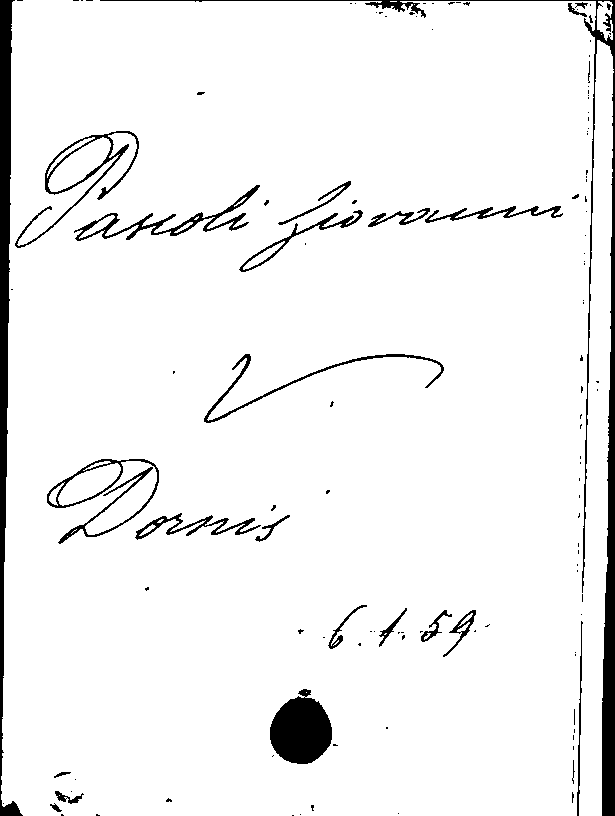 Pascoli Giovanni
V
Dornis
6.1.59